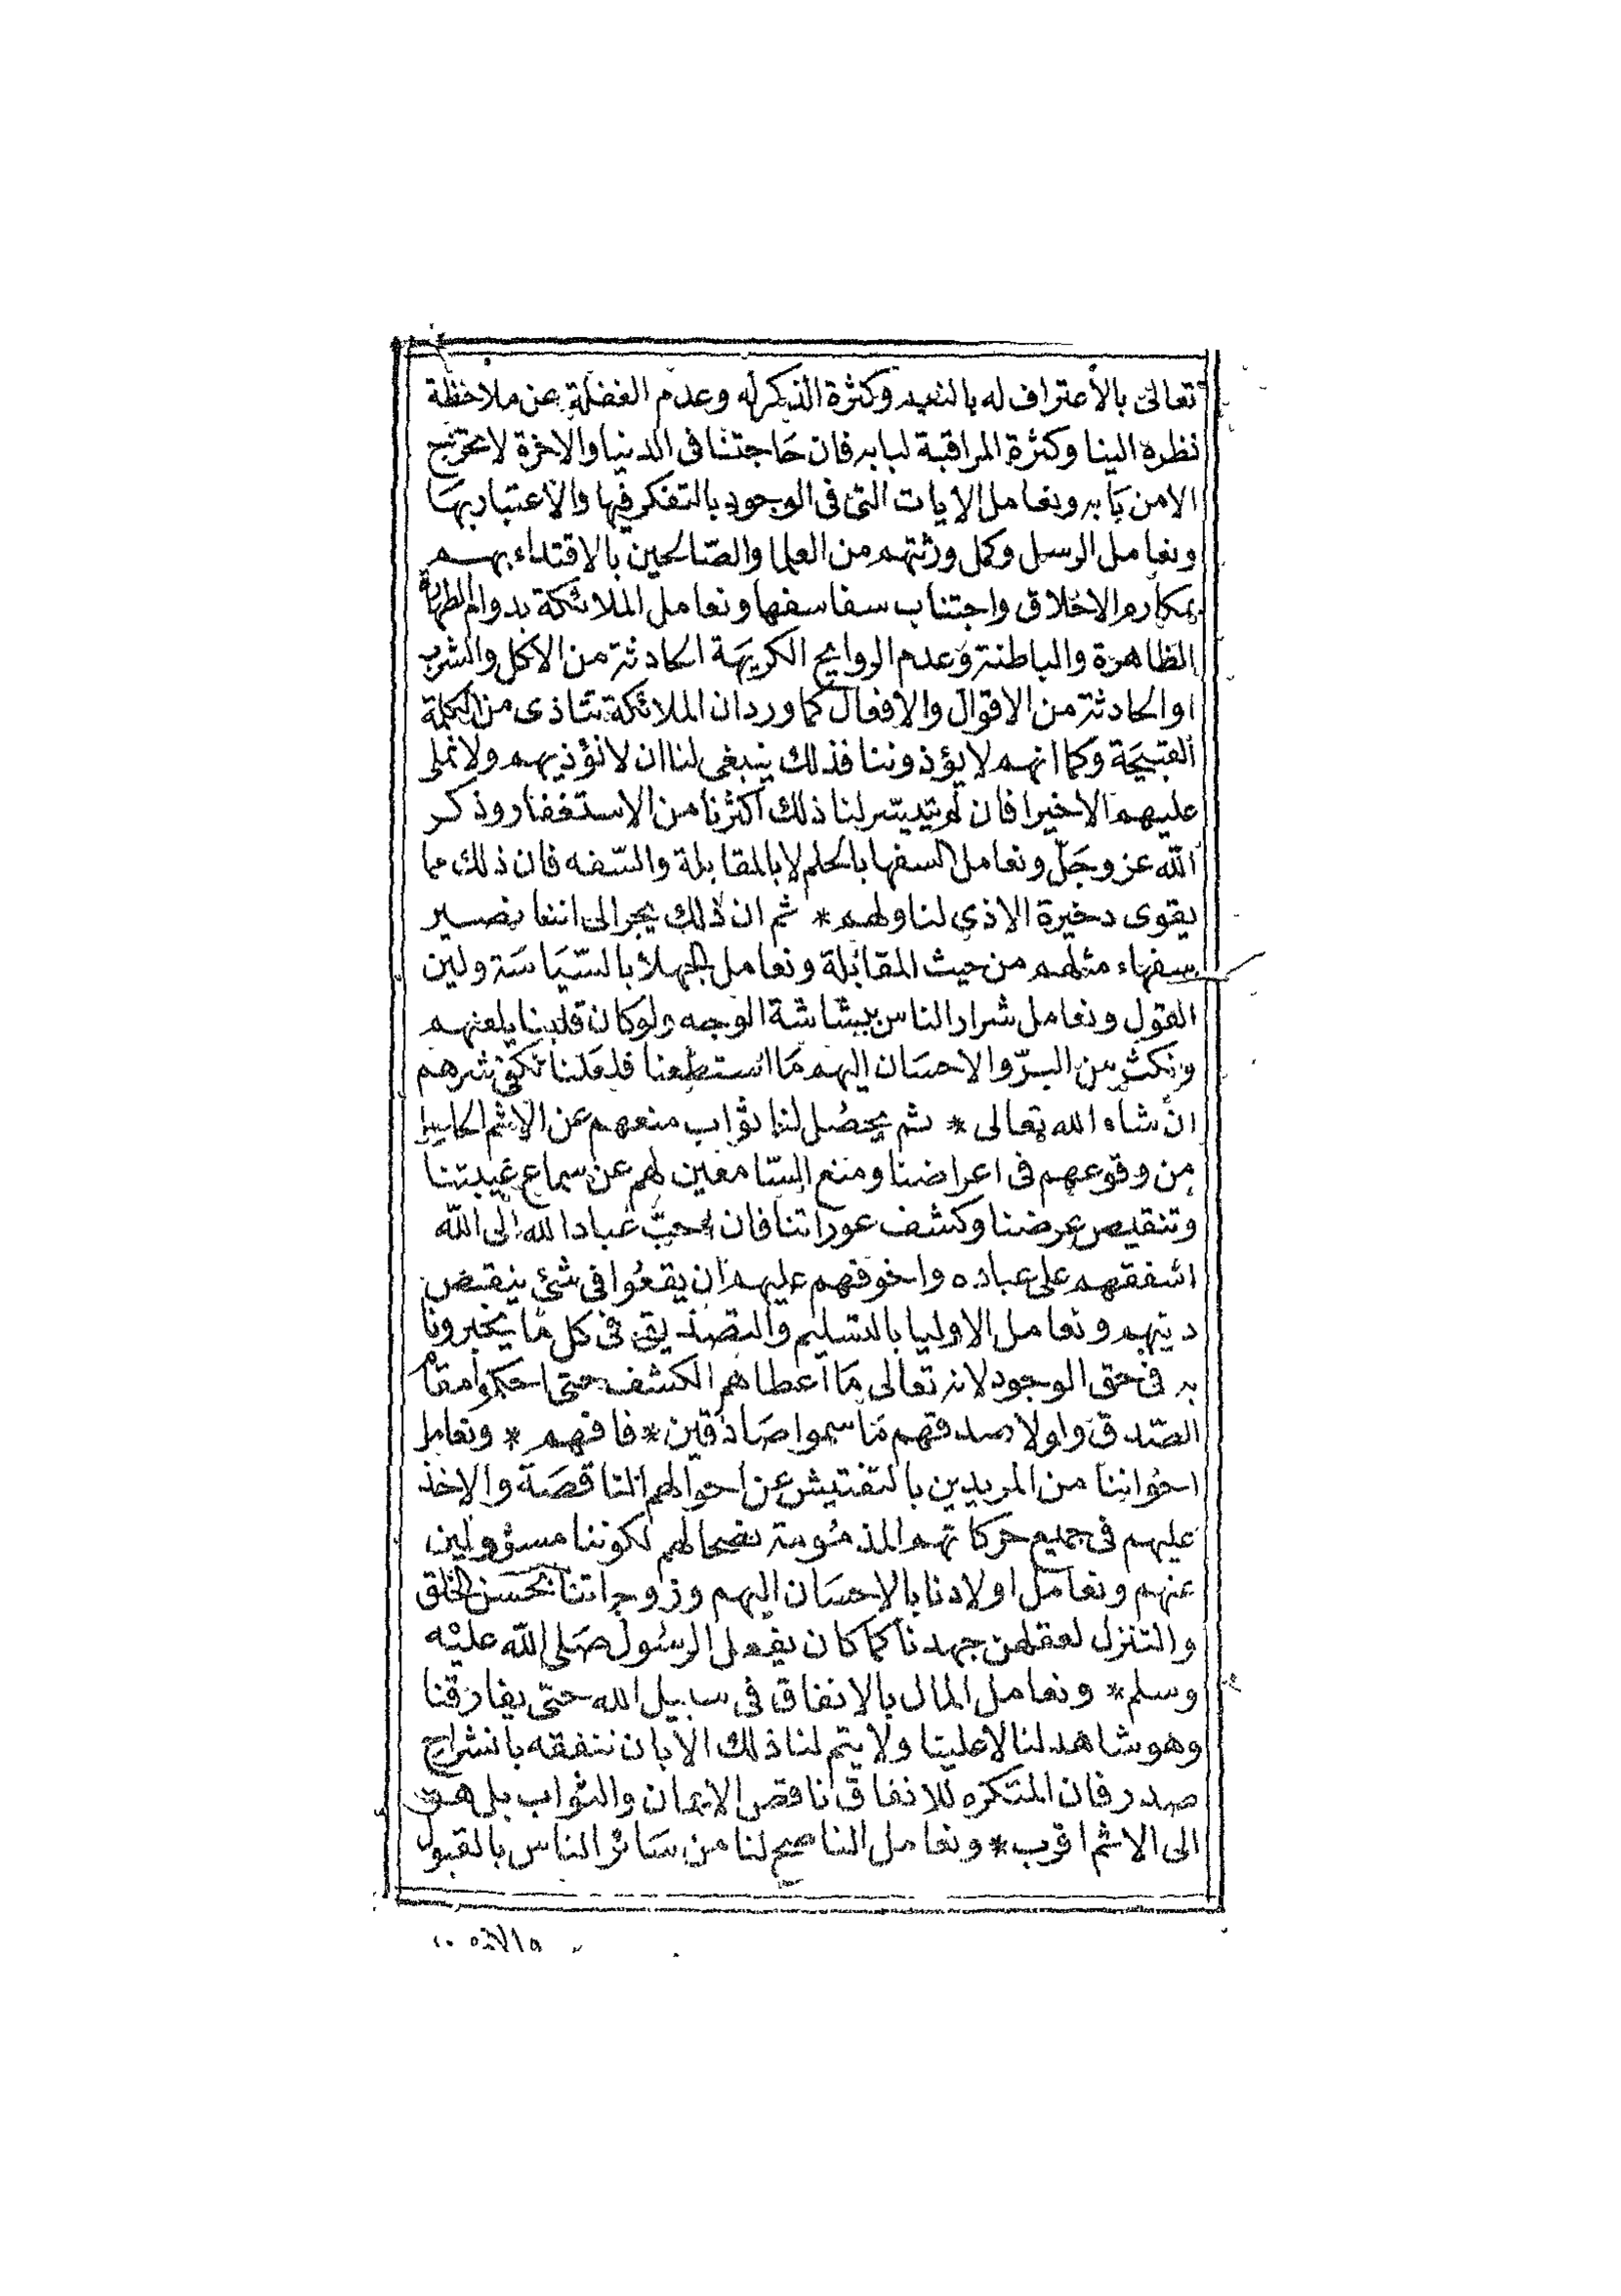 تعالى بالاعتراف له بالنعيم وكثرة الذكر له وعدم الغفلة عن ملاحظة
نظره الينا وكثرة المراقبة لبابه فان حاجتنا فى الدنيا والاخرة لا تخرج
الا من بابه ونعامل الايات التى فى الوجود بالتفكر فيها والاعتبار بها
ونعامل الرسل وكمل ورثتهم من العلما والصالحين بالاقتداء بهم
بمكارم الاخلاق واجتناب سفاسفها ونعامل الملائكة بدوام الطهارة
الظاهرة والباطنة وعدم الروايح الكريهة الحادثة من الاكل والشرب
او الحادثة من الاقوال والافعال كما ورد ان الملائكة تتاذى من الكلمة
القبيحة وكما انهم لا يؤذوننا فذلك ينبغى لنا ان لا نؤذيهم ولا نملى
عليهم الا خيرا فان لم يتيسر لنا ذلك اكثرنا من الاستغفار وذكر
الله عز وجل ونعامل السفها بالحلم لا بالمقابلة والسفه فان ذلك مما
يقوى دخيرة الاذى لنا ولهم * ثم ان ذلك يجر الى اننا نصير
سفهاء مثلهم من حيث المقابلة ونعامل الجهلا بالسياسة ولين
القول ونعامل شرار الناس ببشاشة الوجه ولو كان قلبنا يلعنهم
ونكثر من البر والاحسان اليهم ما استطعنا فلعلنا نكفى شرهم
ان شاء الله تعالى * ثم يحصل لنا ثواب منعهم من الاثم الحاصل
من وقوعهم فى اعراضنا ومنع السامعين لهم عن سماع غيبتنا
وتنقيص عرضنا وكشف عوراتنا فان احب عباد الله الى الله
اشفقهم على عباده واخوفهم عليهم ان يقعوا فى شئ ينقص
دينهم ونعامل الاوليا بالتسليم والتصديق فى كل ما يخبرونا
به فى حق الوجود لانه تعالى ما اعطاهم الكشف حتى احكموا مقام
الصدق ولولا صدقهم ما سموا صادقين * فافهم * ونعامل
اخواننا من المريدين بالتفتيش عن احوالهم الناقصة والاخذ
عليهم فى جميع حركاتهم المذمومة نصحا لهم لكوننا مسؤولين
عنهم ونعامل اولادنا بالاحسان اليهم وزوجاتنا بحسن الخلق
والتنزل لعقلهن جهدنا كما كان يفعل الرسول صلى الله عليه
وسلم * ونعامل المال بالانفاق فى سبيل الله حتى يفارقنا
وهو شاهد لنا لا علينا ولا يتم لنا ذلك الا بان ننفقه بانشراح
صدر فان المتكره للانفاق ناقص الايمان والثواب بل هو
الى الاثم اقرب * ونعامل الناصح لنا من سائر الناس بالقبول